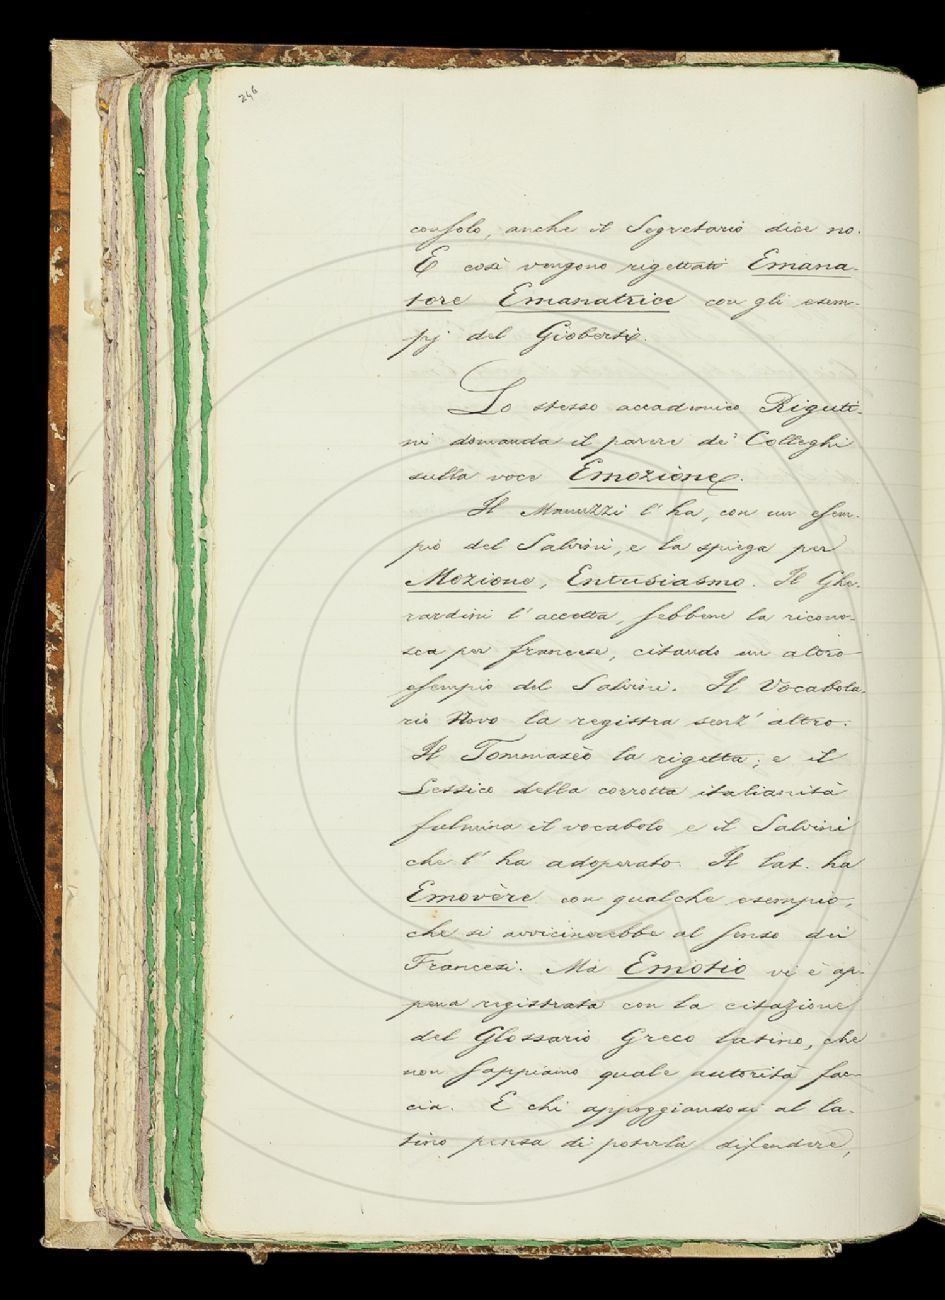 246
consolo, anche il Segretario dice no.
E così vengono rigettati Emana-
tore Emanatrice con gli esem-
pj del Gioberti.
Lo stesso accademico Riguti-
ni domanda il parere de' Colleghi
sulla voce Emozione.
Il Manuzzi l'ha, con un esem-
pio del Salvini, e la spiega per
Mozione, Entusiasmo. Il Ghe-
rardini l'accetta, sebbene la ricono-
sca per francese, citando un altro
esempio del Salvini. Il Vocabola-
rio Novo la registra senz'altro.
Il Tommasèo la rigetta; e il
Lessico della corrotta italianità
fulmina il vocabolo e il Salvini
che l'ha adoperato. Il lat. ha
Emovère con qualche esempio,
che si avvicinerebbe al senso dei
Francesi. Ma Emotio vi è ap-
pena registrata con la citazione
del Glossario Greco latino, che
non sappiamo quale autorità fac-
cia. E chi appoggiandosi al la-
tino pensa di poterla difendere,